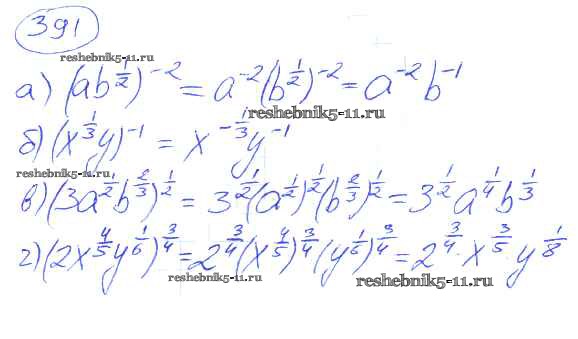 391
reshebnik5-11.ru
а) (ab^{1/2})^{-2} = a^{-2}(b^{1/2})^{-2} = a^{-2}b^{-1}
reshebnik5-11.ru
б) (x^{1/3}y)^{-1} = x^{-1/3}y^{-1}
reshebnik5-11.ru
в) (3a^{1/2}b^{2/3})^{1/2} = 3^{1/2}(a^{1/2})^{1/2}(b^{2/3})^{1/2} = 3^{1/2}a^{1/4}b^{1/3}
г) (2x^{4/5}y^{1/6})^{3/4} = 2^{3/4}(x^{4/5})^{3/4}(y^{1/6})^{3/4} = 2^{3/4}·x^{3/5}·y^{1/8}
reshebnik5-11.ru